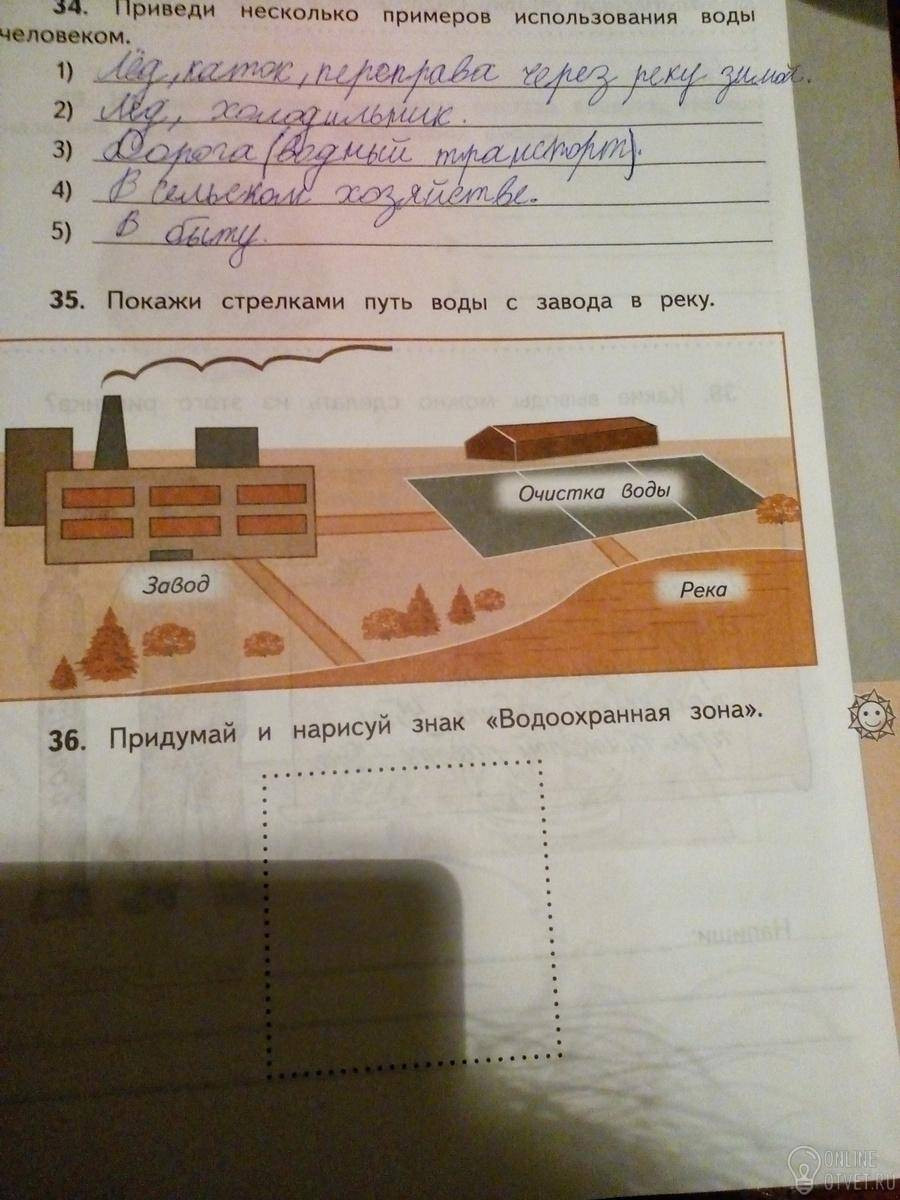 34. Приведи несколько примеров использования воды
человеком.
1) Лёд, каток, переправа через реку зимой.
2) Лёд, холодильник.
3) Дорога (водный транспорт).
4) В сельском хозяйстве.
5) В быту.
35. Покажи стрелками путь воды с завода в реку.
38. Какие выводы можно сделать из этого рисунка?
Очистка воды
Завод
Река
36. Придумай и нарисуй знак «Водоохранная зона».
Напиши:
ONLINE
OTVET.RU